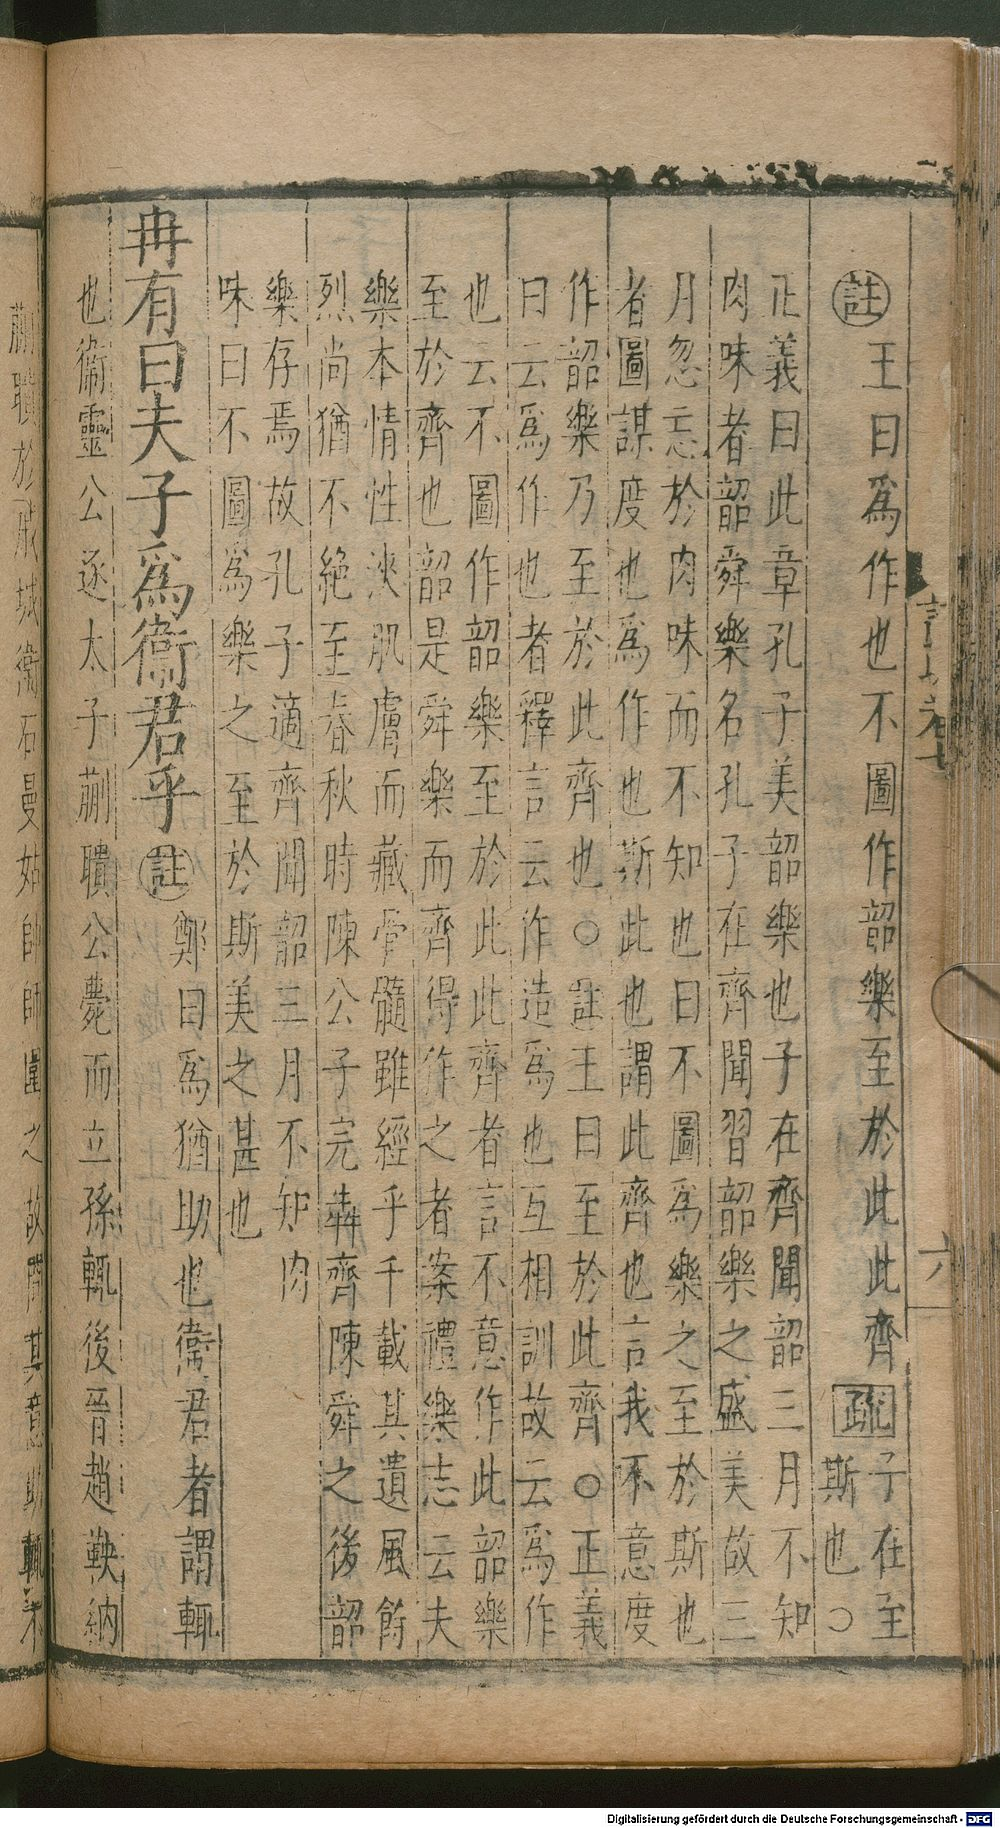 註王曰爲作也不圖作韶樂至於此此齊疏子在至
斯也○
正義曰此章孔子美韶樂也子在齊聞韶三月不知
肉味者韶舜樂名孔子在齊聞習韶樂之盛美故三
月忽忘於肉味而不知也曰不圖爲樂之至於斯也
者圖謀度也爲作也斯此也謂此齊也言我不意度
作韶樂乃至於此齊也○註王曰至於此齊○正義
曰云爲作也者釋言云作造爲也互相訓故云爲作
也云不圖作韶樂至於此此齊者言不意作此韶樂
至於齊也韶是舜樂而齊得作之者案禮樂志云夫
樂本情性浹肌膚而藏骨髓雖經乎千載其遺風餘
烈尚猶不絶至春秋時陳公子完犇齊陳舜之後韶
樂存焉故孔子適齊聞韶三月不知肉
味曰不圖爲樂之至於斯美之甚也
冉有曰夫子爲衞君乎註鄭曰爲猶助也衞君者謂輒
也衞靈公逐太子蒯聵公薨而立孫輒後晉趙鞅納
蒯聵於戚城衞石曼姑帥師圍之故問其意助輒不
六
Digitalisierung gefördert durch die Deutsche Forschungsgemeinschaft - DFG